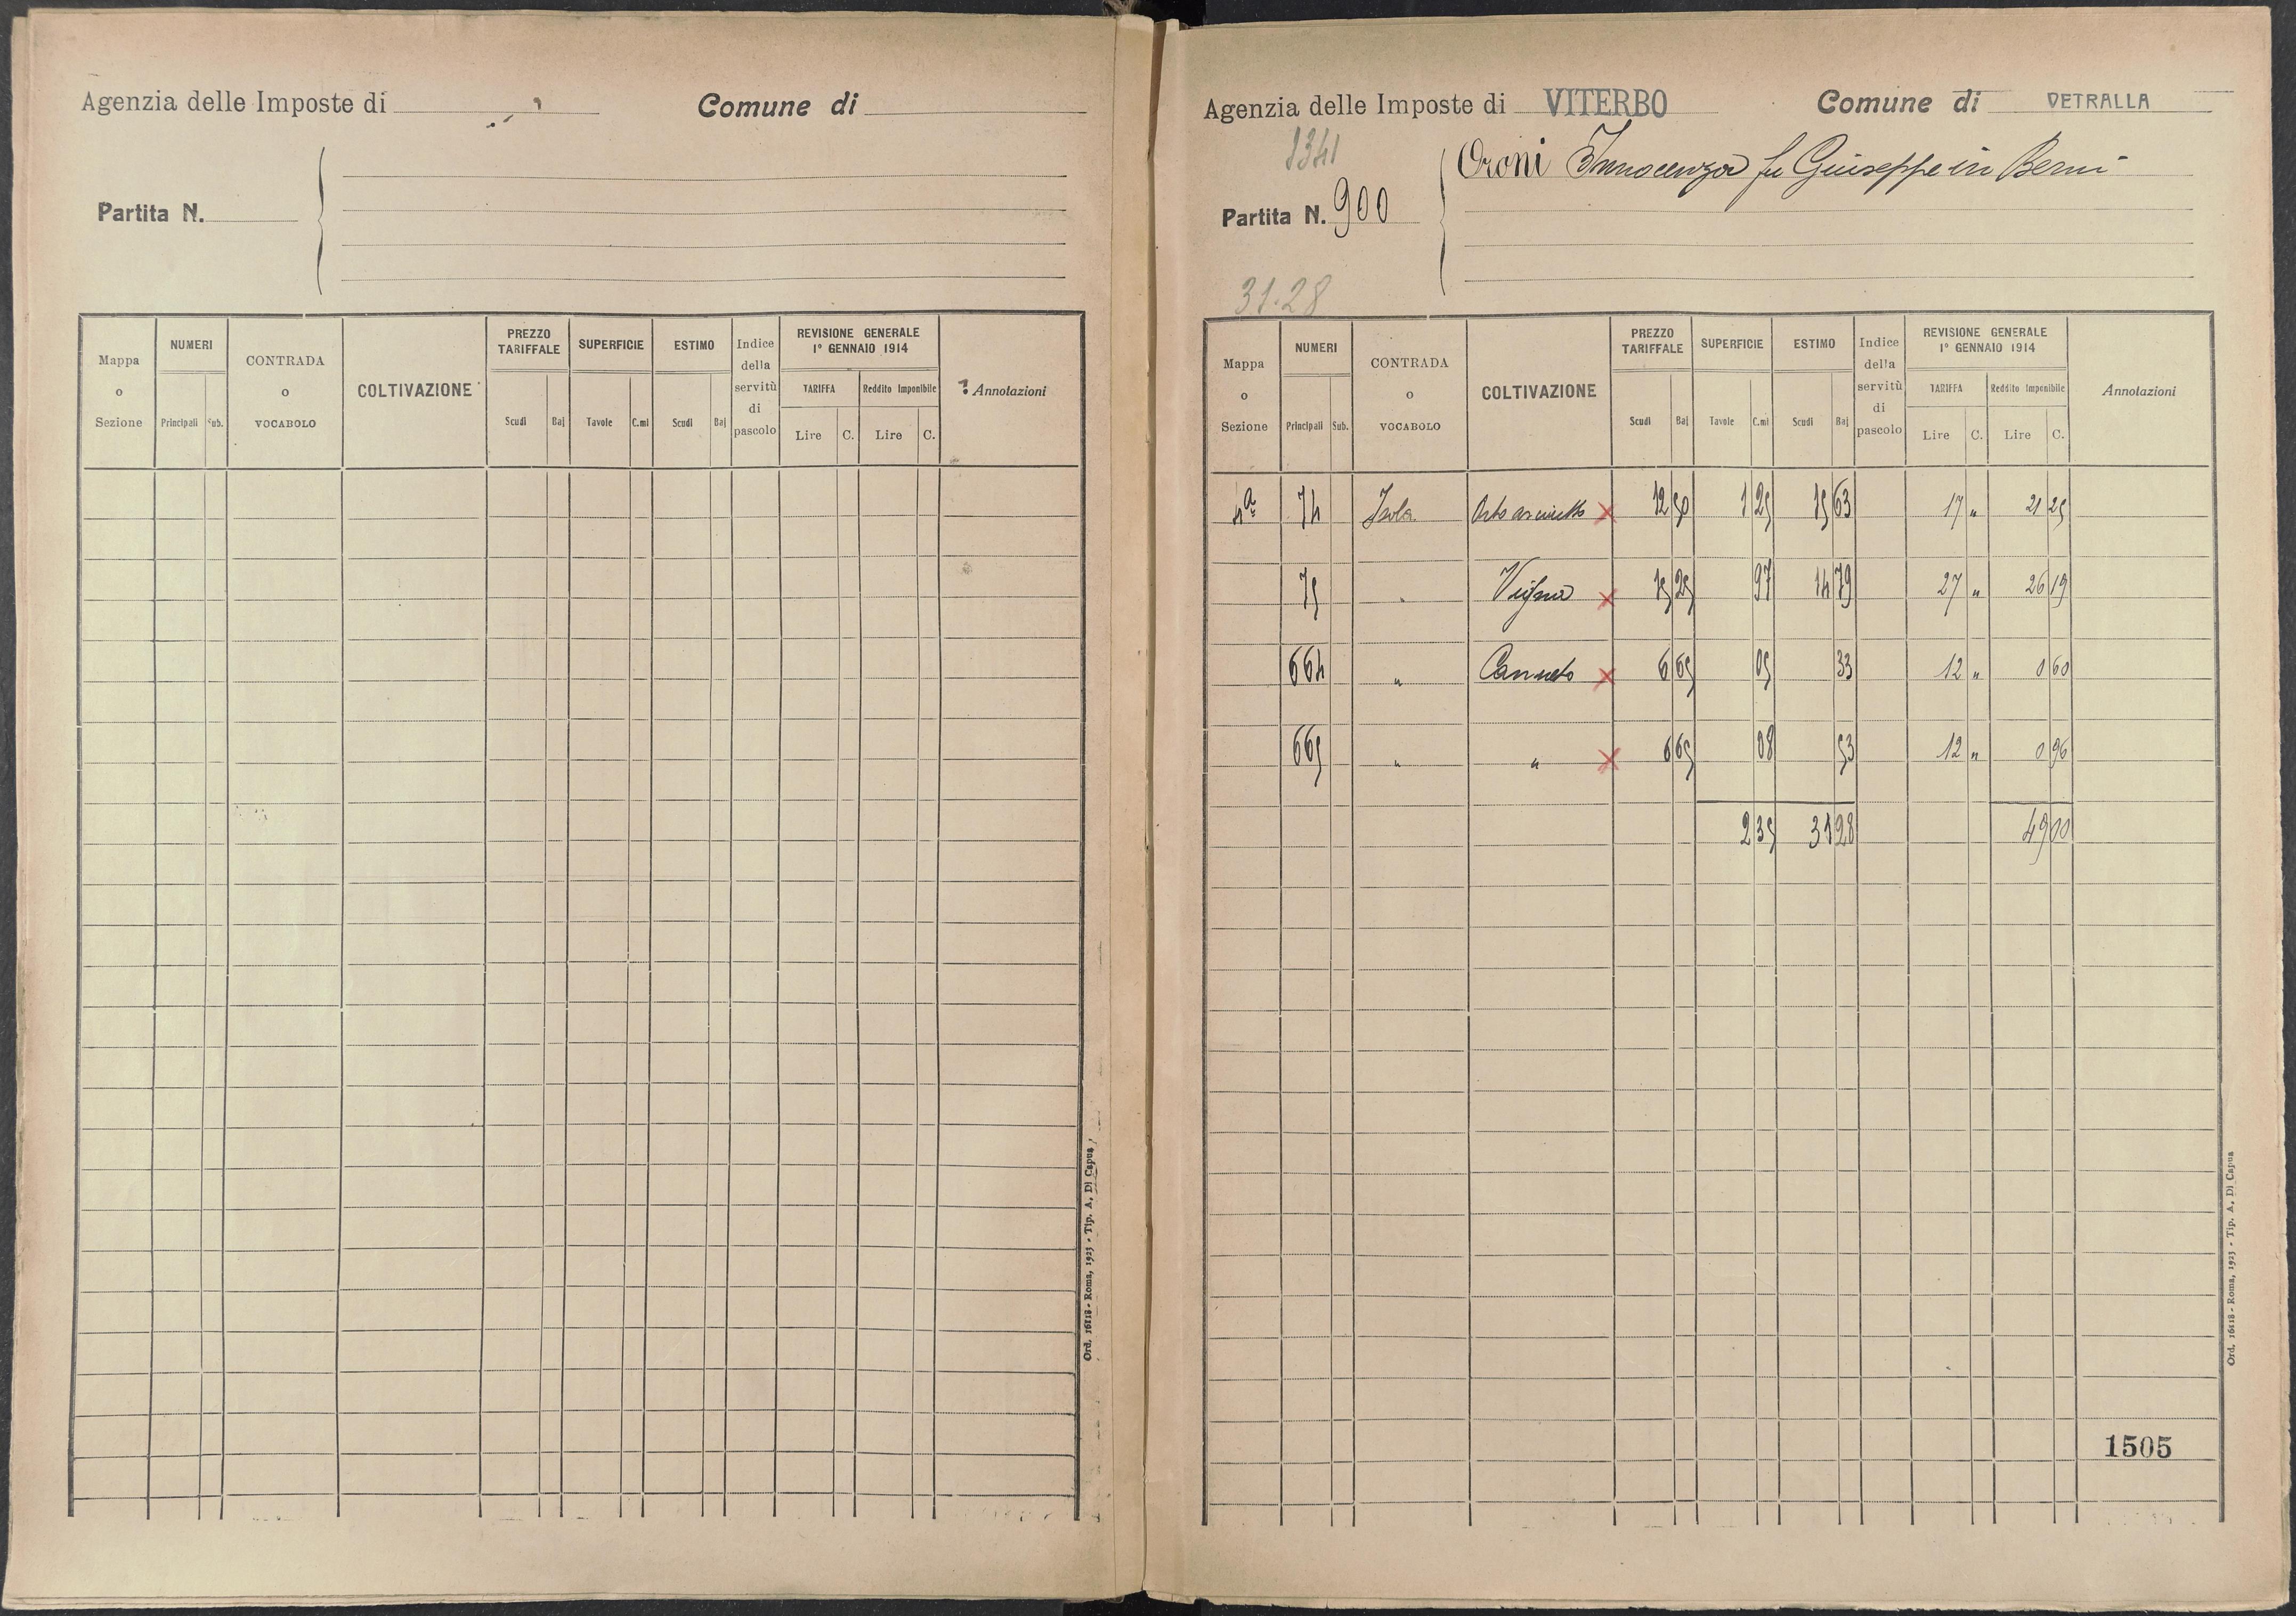 Agenzia delle Imposte di
Comune di
Partita N.
Mappa o Sezione
NUMERI
Principali Sub.
CONTRADA o VOCABOLO
COLTIVAZIONE
PREZZO TARIFFALE
Scudi Baj
SUPERFICIE
Tavole C.mi
ESTIMO
Scudi Baj
Indice della servitù di pascolo
REVISIONE GENERALE
1° GENNAIO 1914
TARIFFA
Lire C.
Reddito Imponibile
Lire C.
Annotazioni
Ord. 16118 - Roma, 1923 - Tip. A. Di Capua
Agenzia delle Imposte di VITERBO
Comune di VETRALLA
1341
Partita N. 900
Oroni Innocenza fu Giuseppe in Berni
31.28
Mappa o Sezione
NUMERI
Principali Sub.
CONTRADA o VOCABOLO
COLTIVAZIONE
PREZZO TARIFFALE
Scudi Baj
SUPERFICIE
Tavole C.mi
ESTIMO
Scudi Baj
Indice della servitù di pascolo
REVISIONE GENERALE
1° GENNAIO 1914
TARIFFA
Lire C.
Reddito Imponibile
Lire C.
Annotazioni
4ª 74 Isola Orto asciutto × 12 50 1 25 15 63 17 " 21 25
75 " Vigna × 15 25 97 14 79 27 " 26 19
664 " Canneto × 6 65 05 33 12 " 0 60
665 " " × 6 65 08 53 12 " 0 96
2 35 31 28 49 00
1505
Ord. 16118 - Roma, 1923 - Tip. A. Di Capua